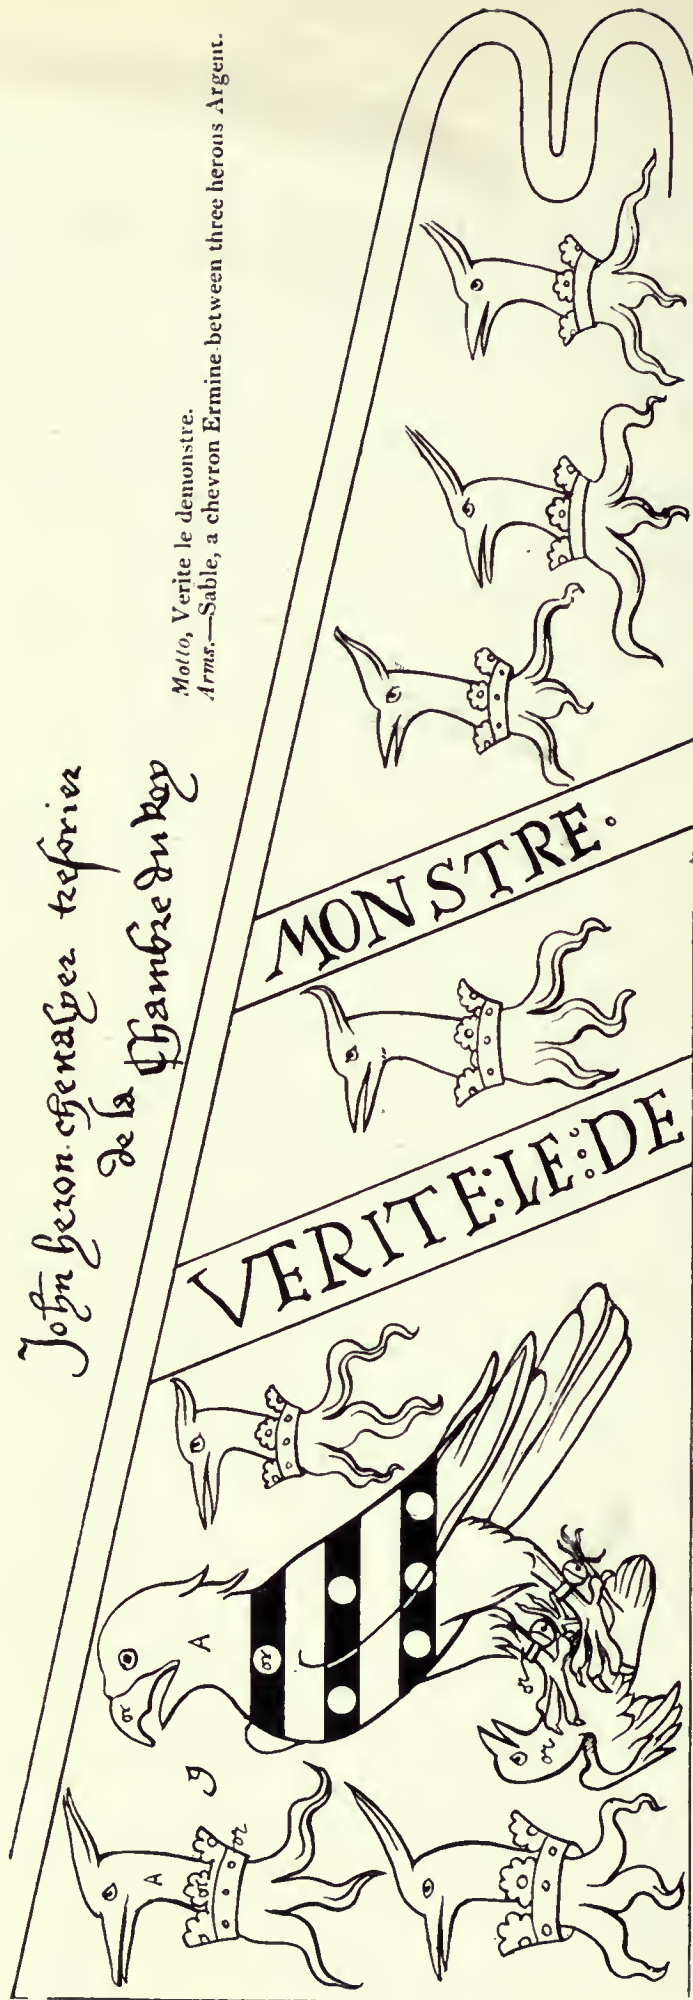 John heron chevalyer tresorier
de la Chambre du Roy
Motto, Verite le demonstre.
Arms.—Sable, a chevron Ermine between three herous Argent.
VERITE:LE:DE
MONSTRE.
A
or
or
g
or
A
or
or
or